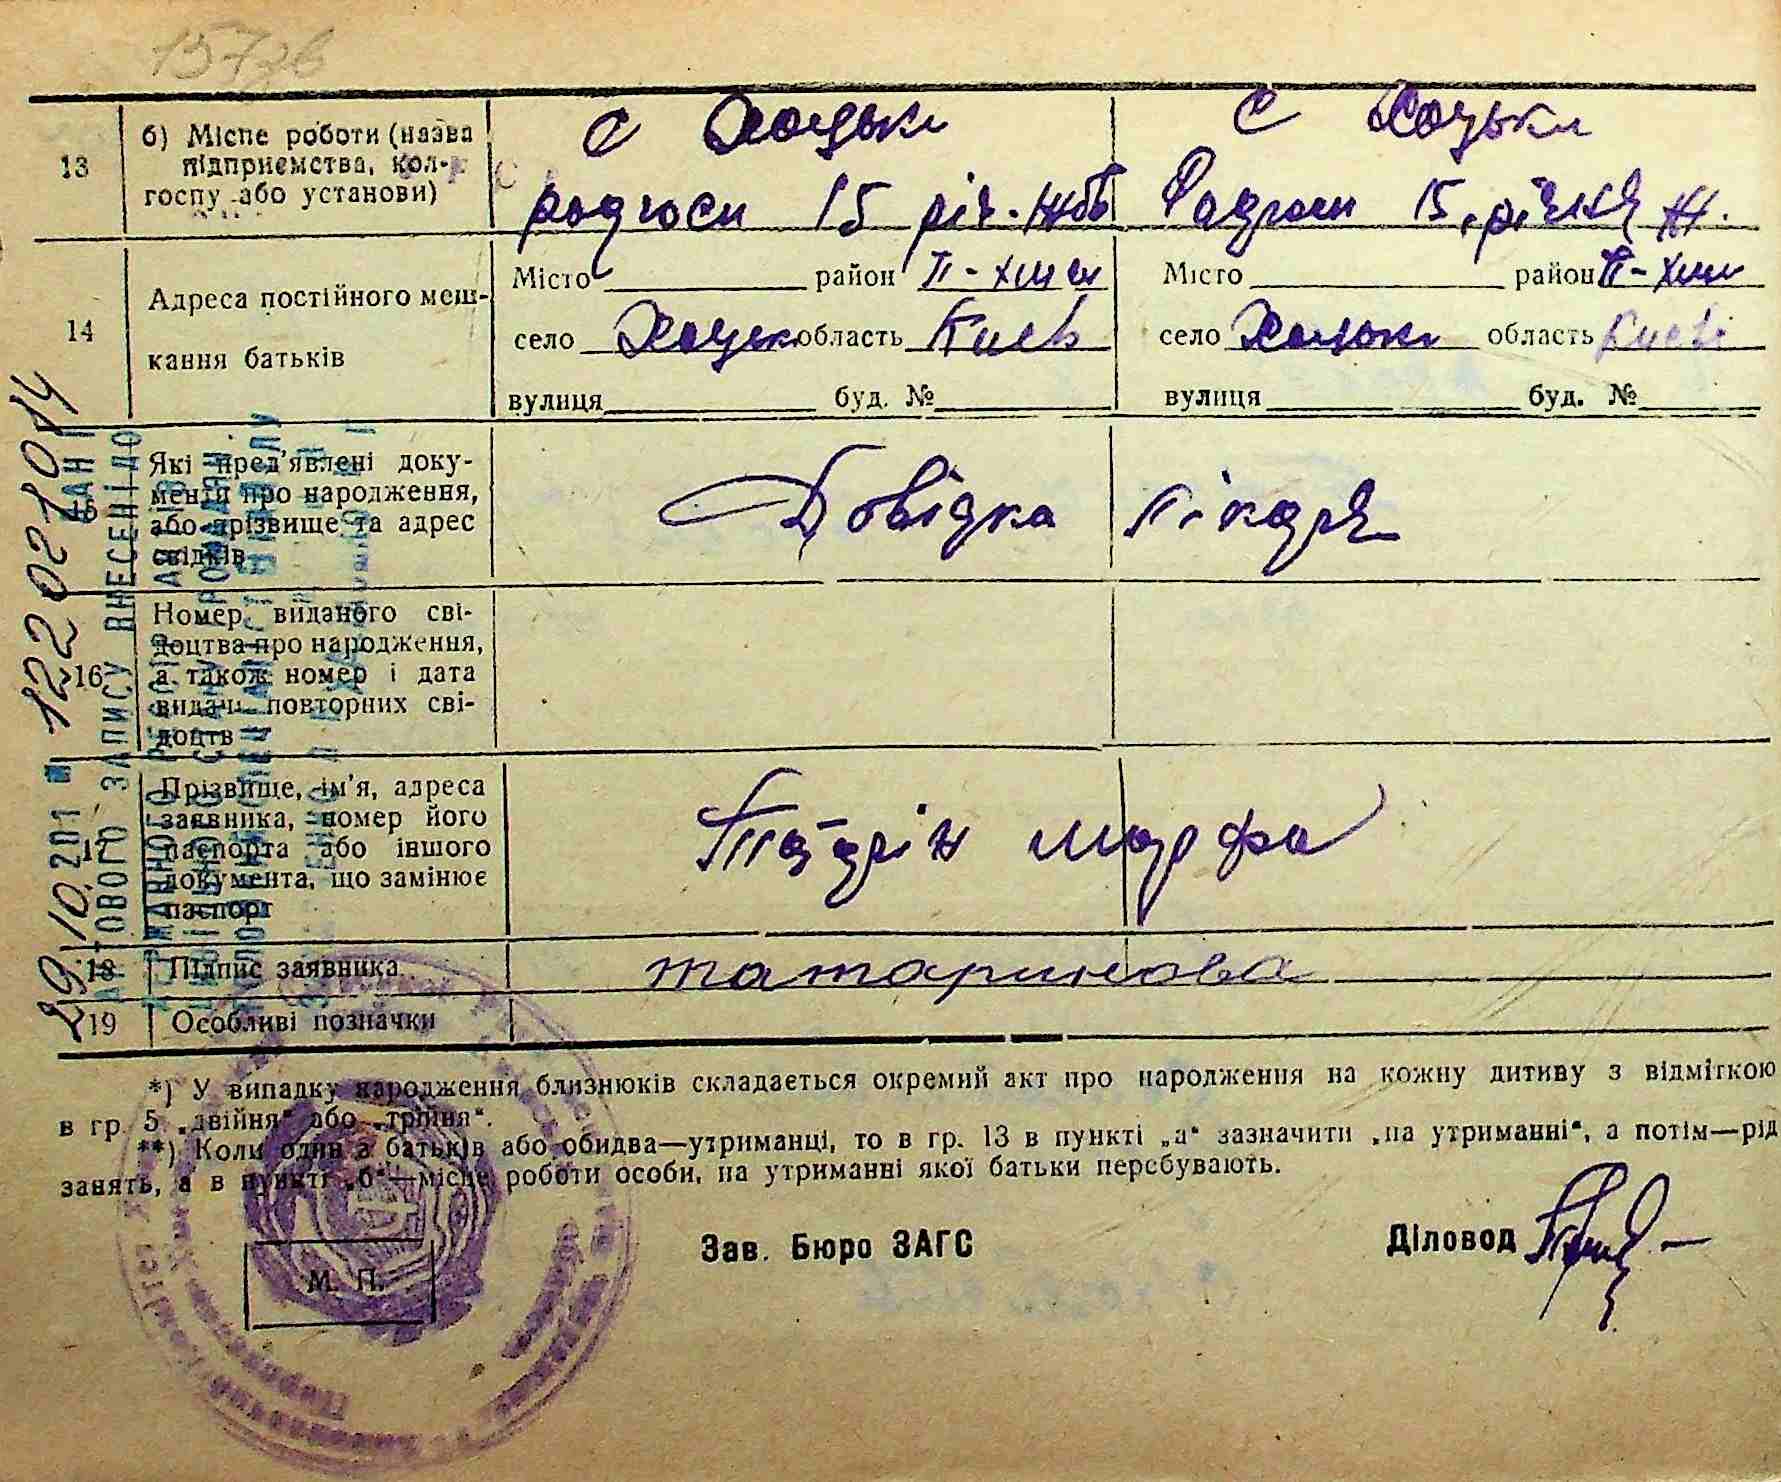 157зв
13
б) Місце роботи (назва підприємства, колгоспу або установи)
с Хоцьки
радгосп 15 річ. Жовт
с Хоцьки
Радгосп 15 річчя Ж.
14
Адреса постійного мешкання батьків
Місто район П-Хмел
село Хоцьки область Київ
вулиця буд. №
Місто район П-Хмел
село Хоцьки область Київ
вулиця буд. №
15
Які пред'явлені документи про народження, або прізвище та адрес свідків
Довідка лікаря
16
Номер виданого свідоцтва про народження, а також номер і дата видачі повторних свідоцтв
17
Прізвище, ім'я, адреса заявника, номер його паспорта або іншого документа, що замінює паспорт
Татарін Марфа
18
Підпис заявника
татаринова
19
Особливі позначки
*) У випадку народження близнюків складається окремий акт про народження на кожну дитину з відміткою
в гр. 5 „двійня" або „трійня".
**) Коли один з батьків або обидва—утриманці, то в гр. 13 в пункті „а" зазначити „на утриманні", а потім—рід
занять, а в пункті „б"—місце роботи особи, на утриманні якої батьки перебувають.
Зав. Бюро ЗАГС
Діловод
М. П.
29.10.201 122021014
АКТОВОГО ЗАПИСУ ВНЕСЕНІ ДО